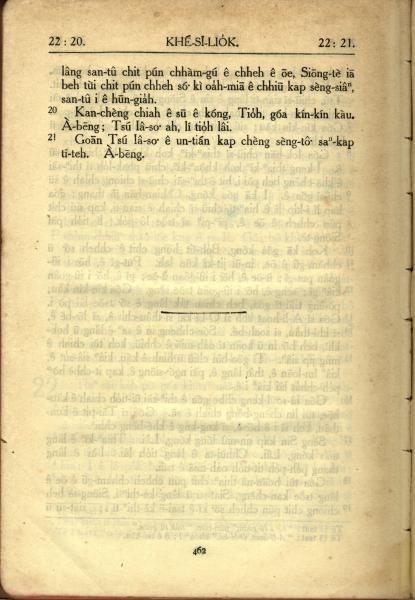 22 : 20. KHÉ-SĪ-LIO̍K. 22 : 21.
lâng san-tû chit pún chhàm-gú ê chheh ê ōe, Siōng-tè iā
beh tùi chit pún chheh só͘ kì oa̍h-miā ê chhiū kap sèng-siâⁿ,
san-tû i ê hūn-gia̍h.
20 Kan-chèng chiah ê sū ê kóng, Tio̍h, góa kín-kín kàu.
À-bēng; Tsú Iâ-so͘ ah, lí tio̍h lâi.
21 Goān Tsú Iâ-so͘ ê un-tián kap chèng sèng-tô͘ saⁿ-kap
tī-teh. À-bēng.
462